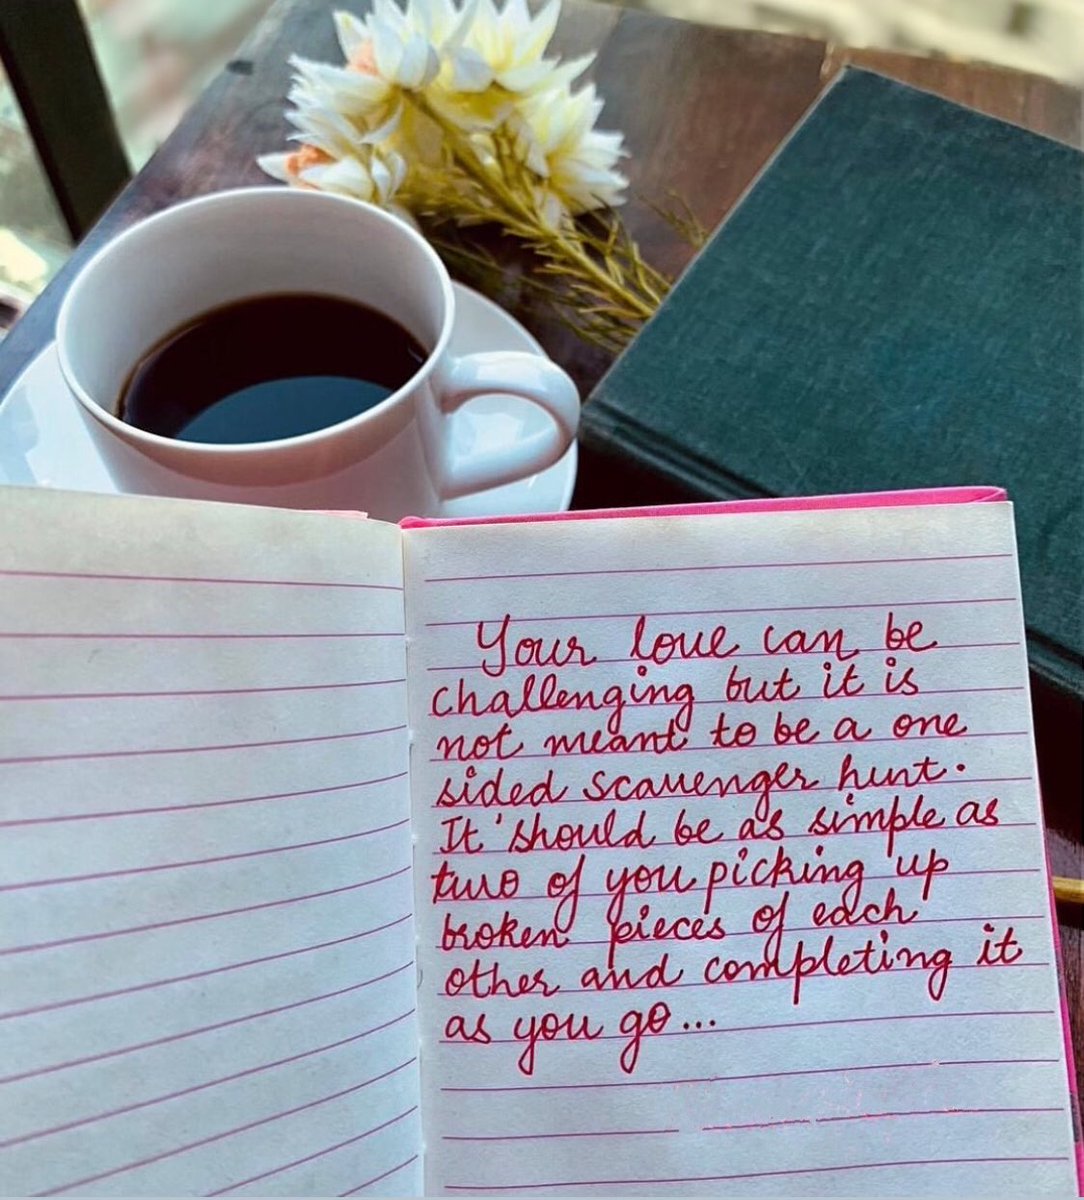 Your love can be
challenging but it is
not meant to be a one
sided scavenger hunt.
It should be as simple as
two of you picking up
broken pieces of each
other and completing it
as you go...